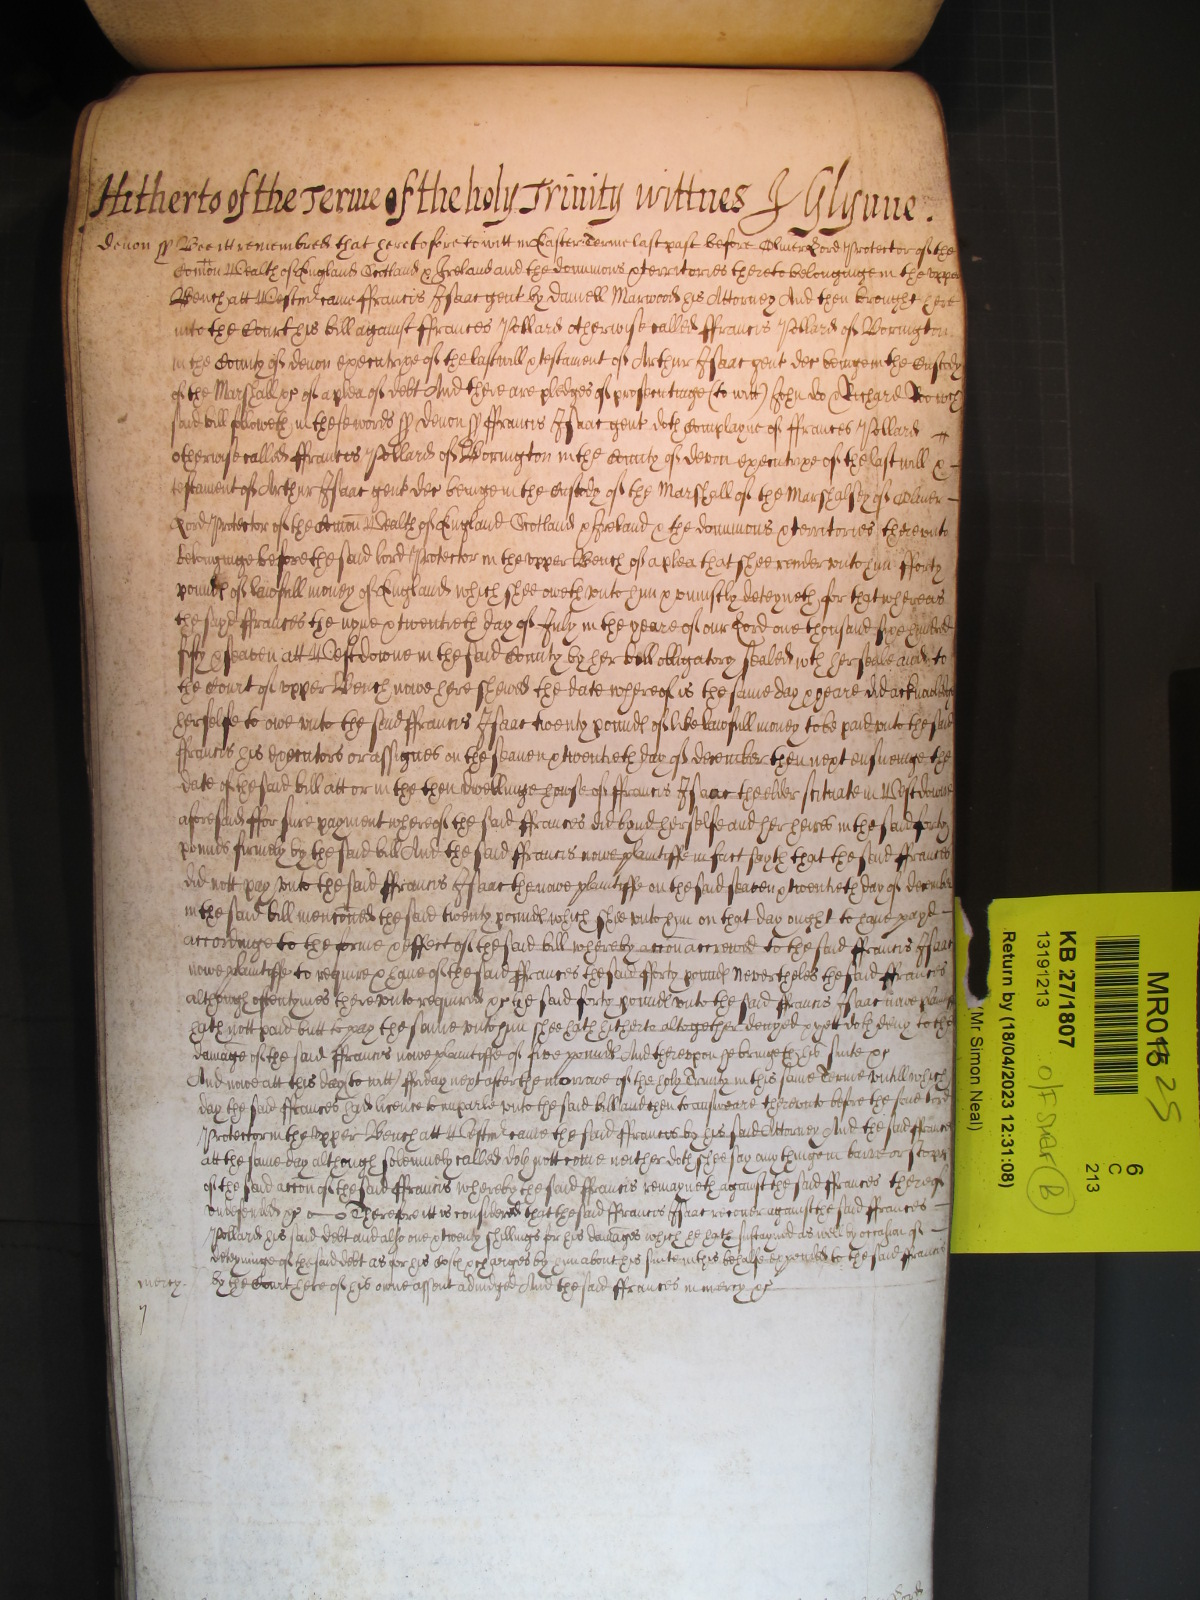 Hitherto of the Terme of the holy Trinity wittnes J Glynne.
Devon ss Bee itt remembred that heretofore to witt in Easter Terme last past before Oliver Lord Protector of the
Comon Wealth of England Scotland & Ireland and the dominions & territories thereto belonginge in the upper
Bench att Westmr came ffrancis Isaac gent by Daniell Marwood his Attorney And then brought here
into the Court his bill against ffrances Pollard otherwise called ffrancis Pollard of Horington
in the County of devon executrixe of the last will & testament of Arthur Isaac gent dec beinge in the Custody
of the Marshall &c of a plea of debt And there are pledges of prosecutinge (to witt) John Do & Richard Roo wch
said bill followeth in these words ss Devon ss ffrancis Isaac gent doth Complayne of ffrances Pollard
otherwise called ffrancis Pollard of Horington in the County of Devon executrixe of the last will &
testament of Arthur Isaac gent dec beinge in the Custody of the Marshall of the Marshalsey of Oliver
Lord Protector of the Comon Wealth of England Scotland & Ireland & the dominions & territories thereunto
belonginge before the said lord Protector in the upper Bench of a plea that shee render unto him fforty
pounds of lawfull money of England which shee oweth unto him & uniustly deteyneth for that whereas
the sayd ffrances the nyne & twentieth day of July in the yeare of our Lord one thousand sixe hundred
fifty & seaven att Westdowne in the said County by her bill obligatory sealed wth her seale and to
the Court of upper Bench nowe here shewed the date whereof is the same day & yeare did acknowledge
herselfe to owe unto the said ffrancis Isaac twenty pounds of like lawfull money to be paid unto the said
ffrancis his executors or assignes on the seaven & twentieth day of december then next ensueinge the
date of the said bill att or in the then dwellinge house of ffrancis Isaac the elder scituate in Westdowne
aforesaid ffor sure payment whereof the said ffrances did bynd herselfe and her heires in the said forty
pounds firmely by the said bill And the said ffrancis nowe plaintiffe in fact sayth that the said ffrances
did nott pay unto the said ffrancis Isaac the nowe plaintiffe on the said seaven & twentieth day of december
in the said bill mencioned the said twenty pounds which shee unto him on that day ought to have payd
accordinge to the forme & effect of the said bill whereby accon accrewed to the said ffrancis Isaac
nowe plaintiffe to require & have of the said ffrances the said fforty pounds Nevertheles the said ffrances
although oftentymes thereunto required &c the said forty pounds unto the said ffrancis Isaac nowe
hath nott paid butt to pay the same unto him shee hath hitherto altogether denyed & yett doth deny to the
damage of the said ffrancis nowe plaintiffe of five pounds And thereupon he bringeth his suite &c
And nowe att this day (to witt) ffriday next after the morrowe of the holy Trinity in this same Terme untill which
day the said ffrances had licence to imparle unto the said bill and then to answeare thereunto before the said lord
Protector in the upper Bench att Westmr came the said ffrancis by his said Attorney And the said ffrances
att the same day although solemnely called doth nott come neither doth shee say any thinge in barre or
of the said accon of the said ffrancis whereby the said ffrancis remayneth against the said ffrances thereof
undefended &c Therefore itt is considered that the said ffrancis Isaac recover against the said ffrances
Pollard his said debt and also one & twenty shillings for his damages which he hath susteyned as well by occasion of
deteyninge of the said debt as for his costs & charges by him about his suite in this behalfe expended to the said ffrancis
mercy by the Court here of his owne assent adiudged And the said ffrances in mercy &c
MR018
25
6
C
213
KB 27/1807
13191213
O/F Staff (B)
Return by (18/04/2023 12:31:08)
(Mr Simon Neal)